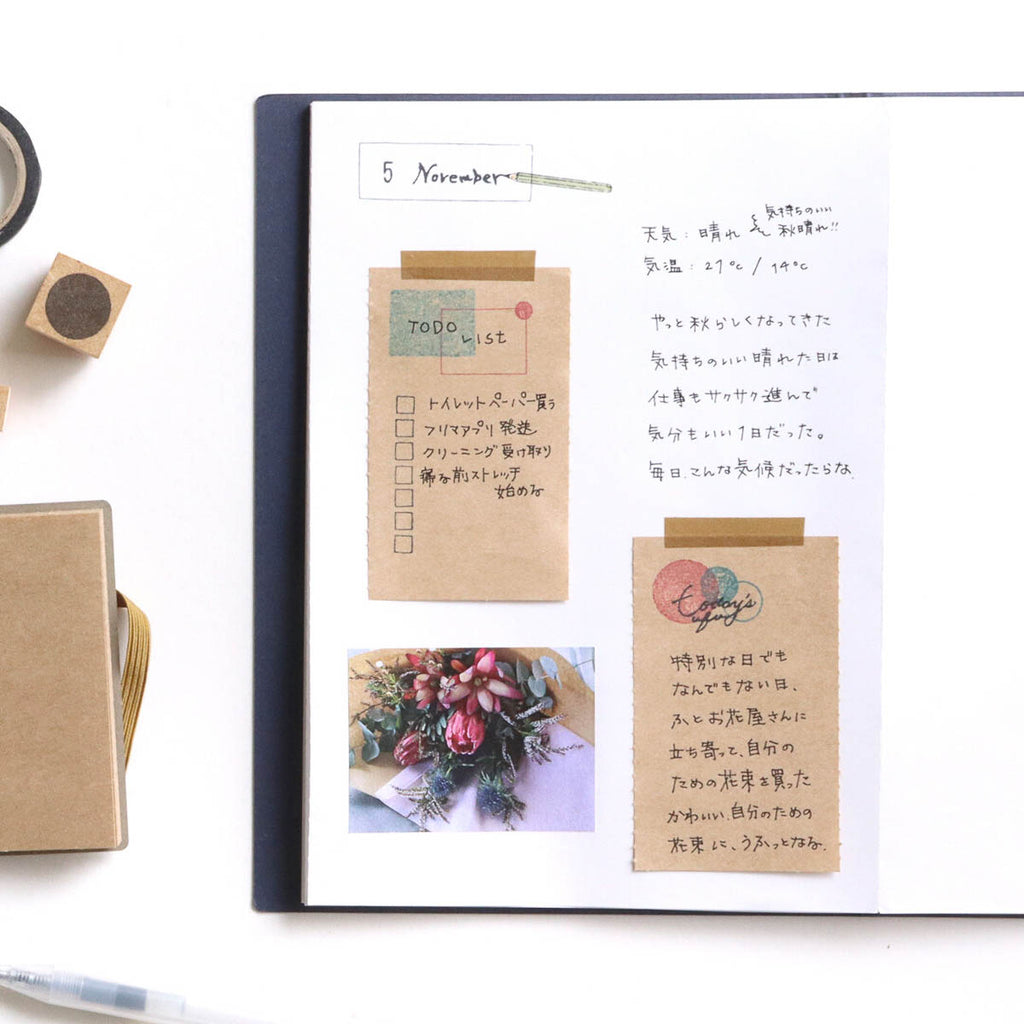 5 November
天気：晴れ
気持ちのいい
秋晴れ!!
気温：21℃ / 14℃
TODO
LIST
トイレットペーパー買う
フリマアプリ 発送
クリーニング 受け取り
寝る前ストレッチ
始める
やっと秋らしくなってきた
気持ちのいい晴れた日は
仕事もサクサク進んで
気分もいい1日だった。
毎日、こんな気候だったらな。
today's
ufufu
特別な日でも
なんでもない日、
ふとお花屋さんに
立ち寄って、自分の
ための花束を買った
かわいい、自分のための
花束に、うふっとなる。